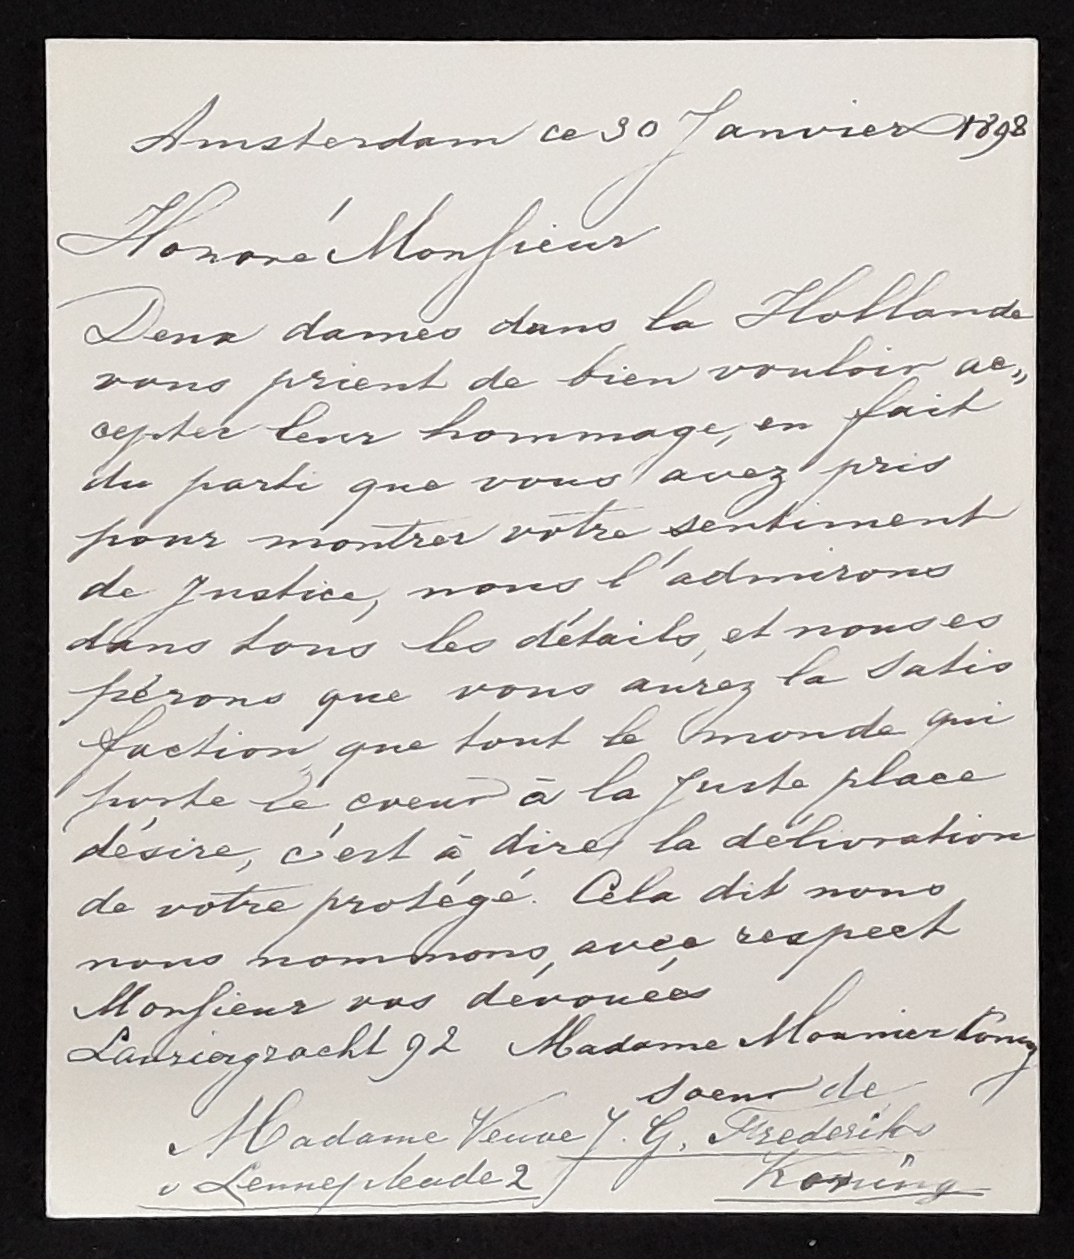 Amsterdam ce 30 Janvier 1898
Honoré Monsieur
Deux dames dans la Hollande
vous prient de bien vouloir ac„
cepter leur hommage, en fait
du parti que vous avez pris
pour montrer votre sentiment
de Justice, nous l'admirons
dans tous les détails, et nous es
pérons que vous aurez la satis
faction, que tout le monde qui
porte le coeur à la juste place
désire, c'est à dire la délivration
de votre protégé. Cela dit nous
nous nommons, avec respect
Monsieur vos devouées
Lauriergracht 92 Madame Mounier Koning
soeur de
Madame Veuve J. G. Frederiks
v Lennepkade 2 Koning